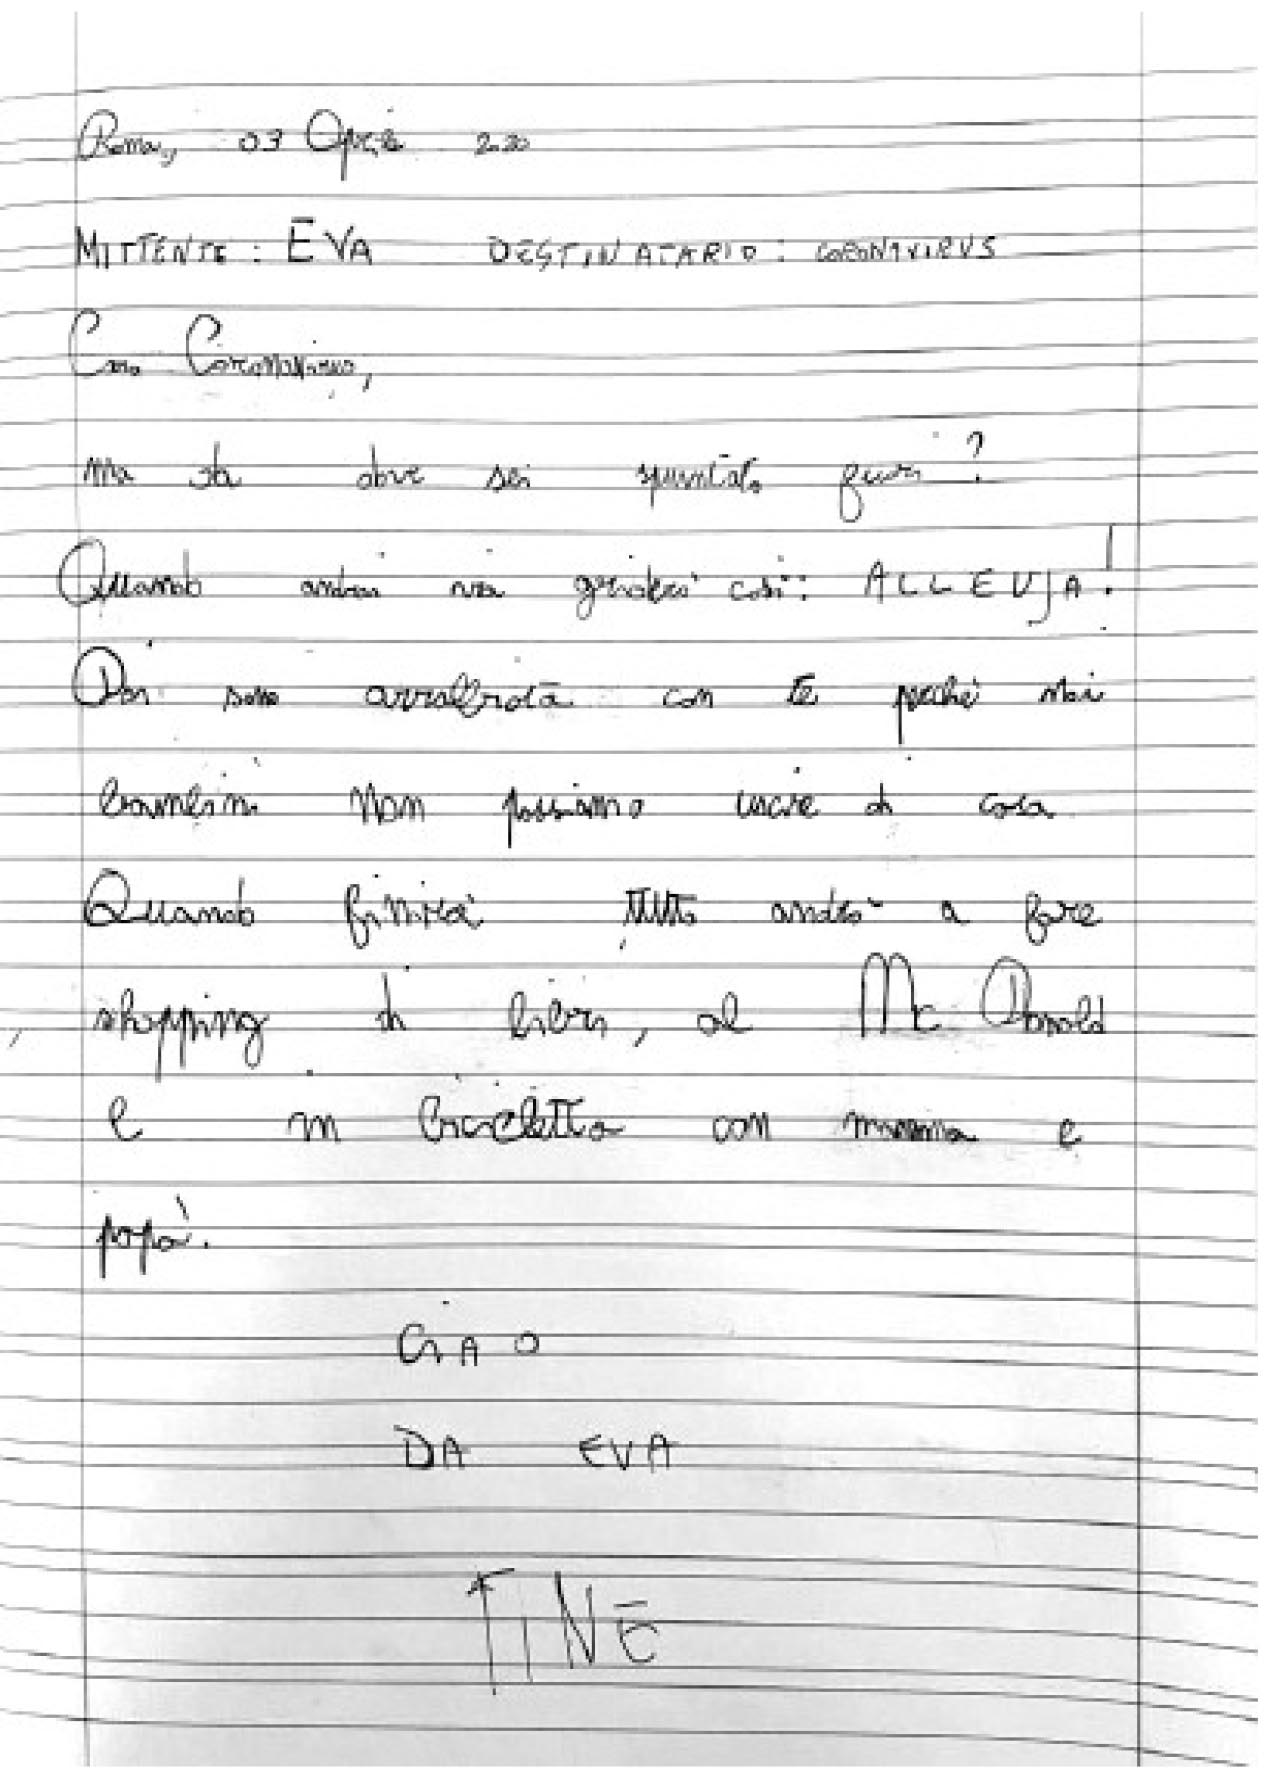 Roma, 03 Aprile 2020
MITTENTE: EVA DESTINATARIO: CORONAVIRUS
Caro Coronavirus,
ma da dove sei spuntato fuori?
Quando andrai via griderò così: ALLEUJA!
Poi sono arrabbiata con te perché noi
bambini non possiamo uscire di casa
Quando finirà tutto andrò a fare
shopping di libri, al Mc Donald
e in bicicletta con mamma e
papà.
CIAO
DA EVA
FINE